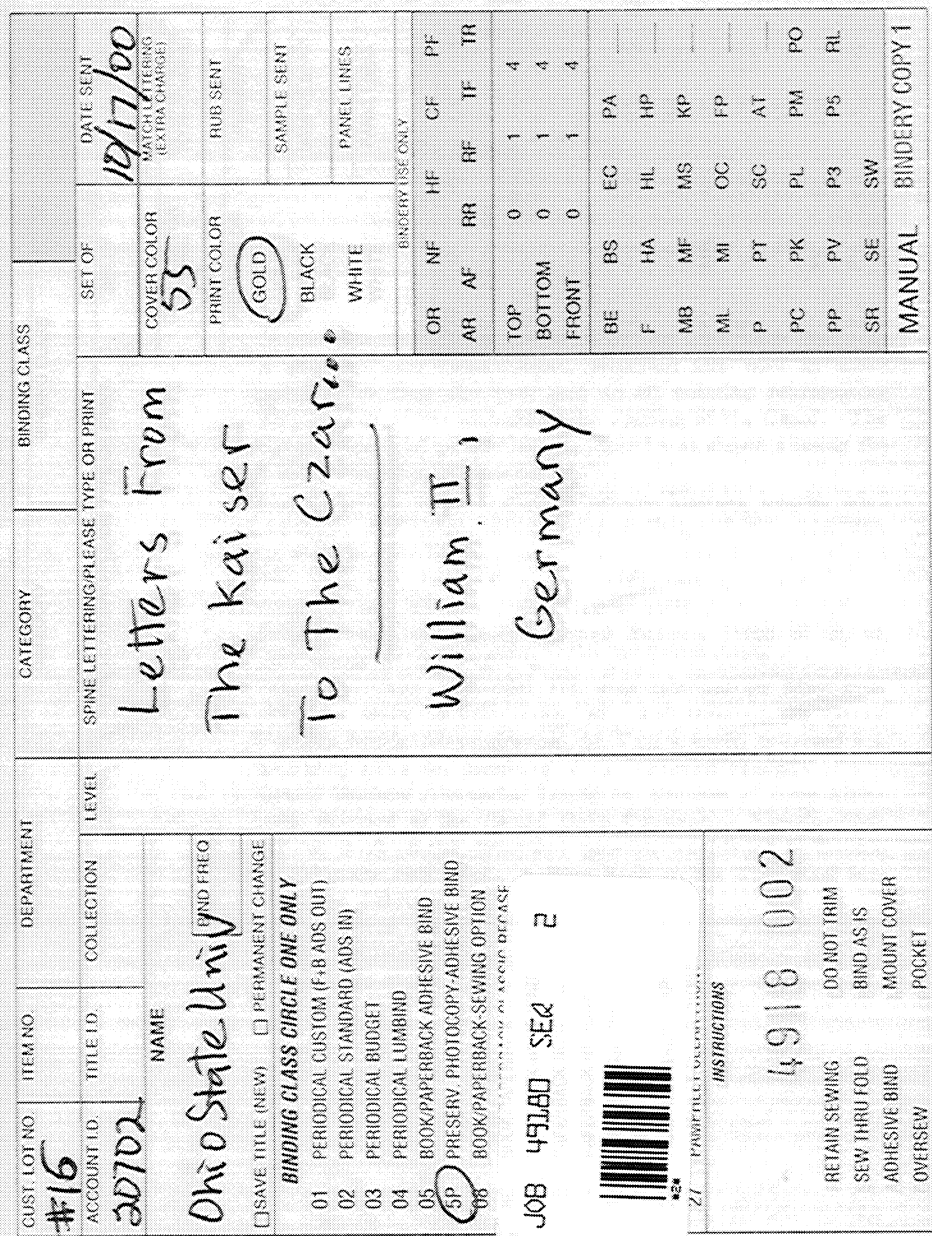 CUST. LOT NO. ITEM NO. DEPARTMENT CATEGORY BINDNG CLASS
#16
ACCOUNT I.D. TITLE I.D. COLLECTION LEVEL
20702
NAME
Ohio State Univ BIND FREQ
☐SAVE TITLE (NEW) ☐ PERMANENT CHANGE
BINDING CLASS CIRCLE ONE ONLY
01 PERIODICAL CUSTOM (F+B ADS OUT)
02 PERIODICAL STANDARD (ADS IN)
03 PERIODICAL BUDGET
04 PERIODICAL LUMBIND
05 BOOK/PAPERBACK ADHESIVE BIND
5P PRESERV. PHOTOCOPY-ADHESIVE BIND
08 BOOK/PAPERBACK-SEWING OPTION
JOB 49180 SEQ 2
*2*
27
INSTRUCTIONS
4918 002
RETAIN SEWING DO NOT TRIM
SEW THRU FOLD BIND AS IS
ADHESIVE BIND MOUNT COVER
OVERSEW POCKET
SPINE LETTERING/PLEASE TYPE OR PRINT
Letters From
The Kaiser
To The Czar...
William II,
Germany
SET OF DATE SENT
10/17/00
COVER COLOR
55
MATCH LETTERING
(EXTRA CHARGE)
PRINT COLOR
GOLD
BLACK
WHITE
RUB SENT
SAMPLE SENT
PANEL LINES
BINDERY USE ONLY
OR NF HF CF PF
AR AF RR RF TF TR
TOP 0 1 4
BOTTOM 0 1 4
FRONT 0 1 4
BE BS EC PA
F HA HL HP
MB MF MS KP
ML MI OC FP
P PT SC AT
PC PK PL PM PO
PP PV P3 P5 RL
SR SE SW
MANUAL BINDERY COPY 1